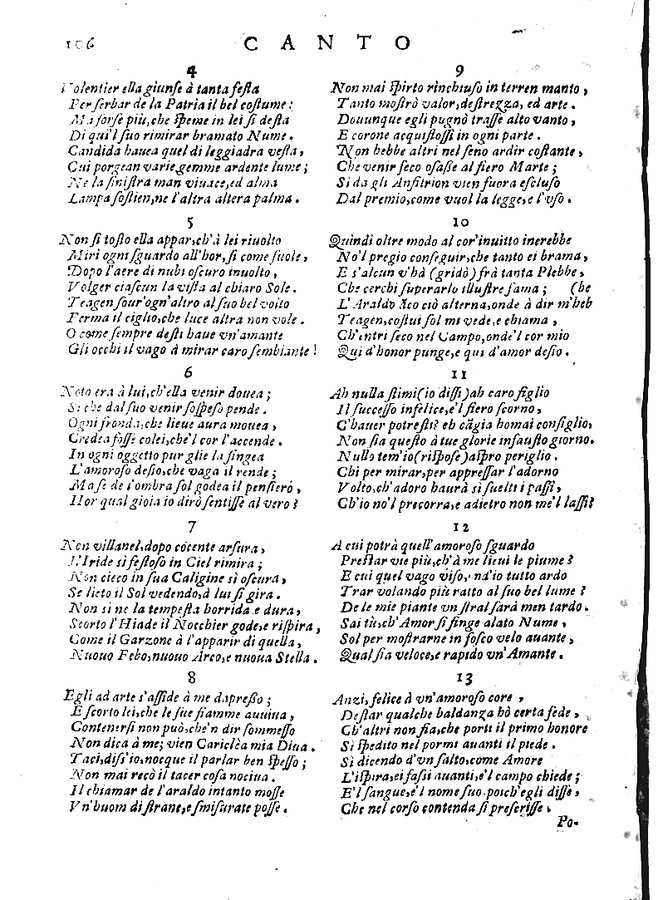 106
CANTO
4
Volentier ella giunse à tanta festa
Per serbar de la Patria il bel costume:
Ma forse più, che speme in lei si desta
Di qui'l suo rimirar bramato Nume.
Candida hauea quel dì leggiadra vesta,
Cui porgean varie gemme ardente lume;
Ne la sinistra man viuace, ed alma
Lampa sostien, ne l'altra altera palma.
5
Non sì tosto ella appar, ch'à lei riuolto
Mirì ogni sguardo all'hor, sì come suole,
Dopo l'aere di nubi oscuro inuolto,
Volger ciascun la vista al chiaro Sole.
Teagen sour'ogn'altro al suo bel volto
Ferma il ciglio, che luce altra non vole.
O come sempre desti haue vn'amante
Gli occhi il vago à mirar caro sembiante!
6
Noto era à lui, ch'ella venir douea;
Sì che dal suo venir sospeso pende.
Ogni fronda, che lieue aura mouea,
Credea fosse colei, che'l cor l'accende.
In ogni oggetto pur glie la fingea
L'amoroso desio, che vaga il rende;
Ma se de l'ombra sol godea il pensiero,
Hor qual gioia io dirò sentisse al vero?
7
Non villanel, dopo cocente arsura,
L'Iride sì festoso in Ciel rimira;
Non cieco in sua Caligine sì oscura,
Se lieto il Sol vedendo, à lui si gira.
Non sì ne la tempesta horrida e dura,
Scorto l'Hiade il Nocchier gode, e rispira,
Come il Garzone à l'apparir di quella,
Nuouo Febo, nuouo Arco, e nuoua Stella.
8
Egli ad arte s'asside à me dapresso;
E scorto lei, che le sue fiamme auuiua,
Contenersi non può, che'n dir sommesso
Non dica à me; vien Cariclèa mia Diua.
Taci, diss'io, nocque il parlar ben spesso;
Non mai recò il tacer cosa nociua.
Il chiamar de l'araldo intanto mosse
Vn'huom di strane, e smisurate posse.
9
Non mai spirto rinchiuso in terren manto,
Tanto mostrò valor, destrezza, ed arte.
Douunque egli pugnò trasse alto vanto,
E corone acquistossi in ogni parte.
Non hebbe altri nel seno ardir costante,
Che venir seco osasse al fiero Marte;
Sì da gli Anfitrion vien fuora escluso
Dal premio, come vuol la legge, e l'vso.
10
Quindi oltre modo al cor'inuitto increbbe
No'l pregio conseguir, che tanto ei brama,
E s'alcun v'hà (gridò) frà tanta Plebbe,
Che cerchi superarlo illustre fama; (be
L'Araldo seco ciò alterna, onde à dir m'heb
Teagen, costui sol mi vede, e chiama,
Ch'entri seco nel Campo, ond'el cor mio
Qui d'honor punge, e qui d'amor desio.
11
Ah nulla stimi (io dissi) ah caro figlio
Il successo infelice, e'l fiero scorno,
C'hauer potresti? eh cãgia homai consiglio,
Non sia questo à tue glorie infausto giorno.
Nullo tem'io (rispose) aspro periglio.
Chi per mirar, per appressar l'adorno
Volto, ch'adoro haurà sì suelti i passi,
Ch'io no'l precorra, e adietro non me'l lassi?
12
A cui potrà quell'amoroso sguardo
Prestar vie più, ch'à me lieui le piume?
E cui quel vago viso, ond'io tutto ardo
Trar volando più ratto al suo bel lume?
De le mie piante vn stral sarà men tardo.
Sai tù, ch'Amor si finge alato Nume,
Sol per mostrarne in fosco velo auante,
Qual sia veloce, e rapido vn'Amante.
13
Anzi, felice à vn'amoroso core,
Destar qualche baldanza hò certa fede,
Ch'altri non sia, che porti il primo honore
Sì spedito nel pormi auanti il piede.
Sì dicendo d'vn salto, come Amore
L'ispira, ei fassi auanti, e'l campo chiede;
E'l sangue, e'l nome suo, poich'egli disse,
Che nel corso contenda si prescrisse,
Po-